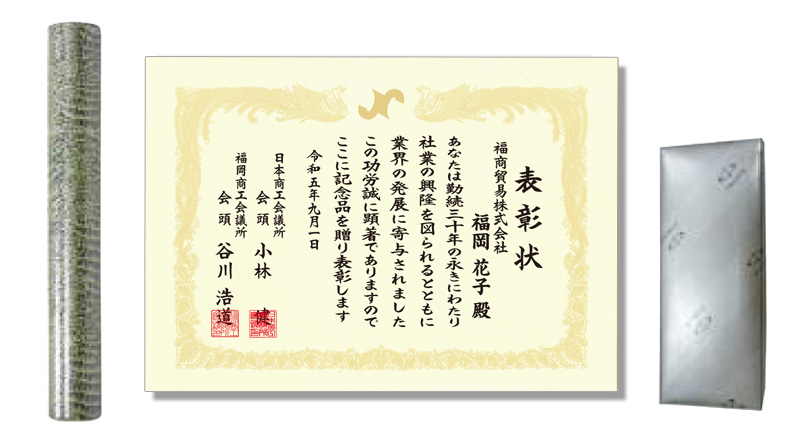 表彰状
福商貿易株式会社
福岡 花子 殿
あなたは勤続三十年の永きにわたり
社業の興隆を図られるとともに
業界の発展に寄与されました
この功労誠に顕著でありますので
ここに記念品を贈り表彰します
令和五年九月一日
日本商工会議所
会頭 小林 健
福岡商工会議所
会頭 谷川 浩道